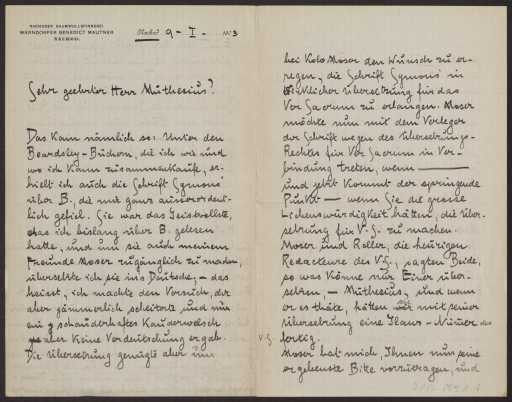 NACHODER BAUMWOLLSPINNEREI
WAERNDORFER BENEDICT MAUTNER
NACHOD.
Nachod 9 - I - 1903
Sehr geehrter Herr Muthesius!
Das kam nämlich so: Unter den
Beardsley-Büchern, die ich wie und
wo ich kann zusammenkaufe, er-
hielt ich auch die Schrift Symons'
über B., die mir ganz ausserordent-
lich gefiel. Sie war das Geistvollste,
das ich bislang über B. gelesen
hatte, und um sie auch meinem
Freunde Moser zugänglich zu machen,
übersetzte ich sie ins Deutsche, – das
heisst, ich machte den Versuch, der
aber jämmerlich scheiterte und nur
ein schauderhaftes Kauderwelsch
aber keine Verdeutschung ergab.
Die Übersetzung genügte aber um
bei Kolo Moser den Wunsch zu er-
regen, die Schrift Symons' in
wirklicher Übersetzung für das
Ver Sacrum zu erlangen. Moser
möchte nun mit dem Verleger
der Schrift wegen des Übersetzungs-
Rechtes für Ver Sacrum in Ver-
bindung treten, wenn ———
und jetzt kommt der springende
Punkt — wenn Sie die grosse
Liebenswürdigkeit hätten, die Über-
setzung für V.S. zu machen.
Moser und Roller, die heurigen
Redacteure des V.S., sagten Beide,
so was könne nur Einer über-
setzen, – Muthesius, und wenn
er es thäte, hätten wir mit seiner
Übersetzung eine Staats-Numer des
V.S. fertig.
Moser bat mich, Ihnen nun seine
ergebenste Bitte vorzutragen, und